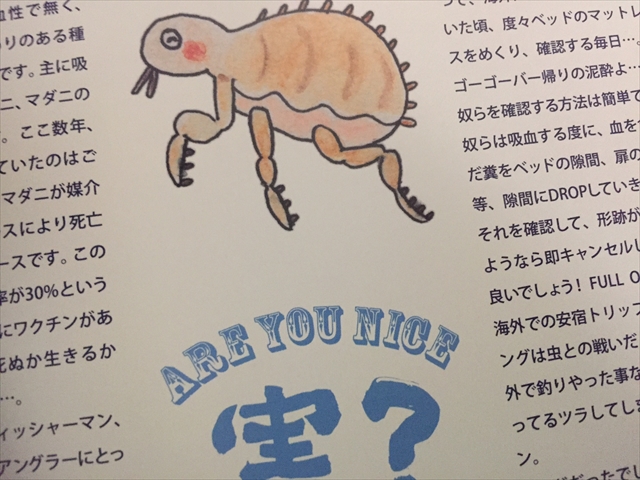 血性で無く、
りのある種
です。主に吸
ニ、マダニの
。ここ数年、
ていたのはご
マダニが媒介
スにより死亡
ースです。この
率が30%という
にワクチンがあ
死ぬか生きるか
…。
ィッシャーマン、
アングラーにとっ
ARE YOU NICE
実？
いた頃、度々ベッドのマット
スをめくり、確認する毎日…。
ゴーゴーバー帰りの泥酔よ…
奴らを確認する方法は簡単で
奴らは吸血する度に、血を
だ糞をベッドの隙間、扉の
等、隙間にDROPしていき
それを確認して、形跡が
ようなら即キャンセルし
良いでしょう！ FULL O
海外での安宿トリップ
ングは虫との戦いだ
外で釣りやった事な
ってるツラしてしま
ン。